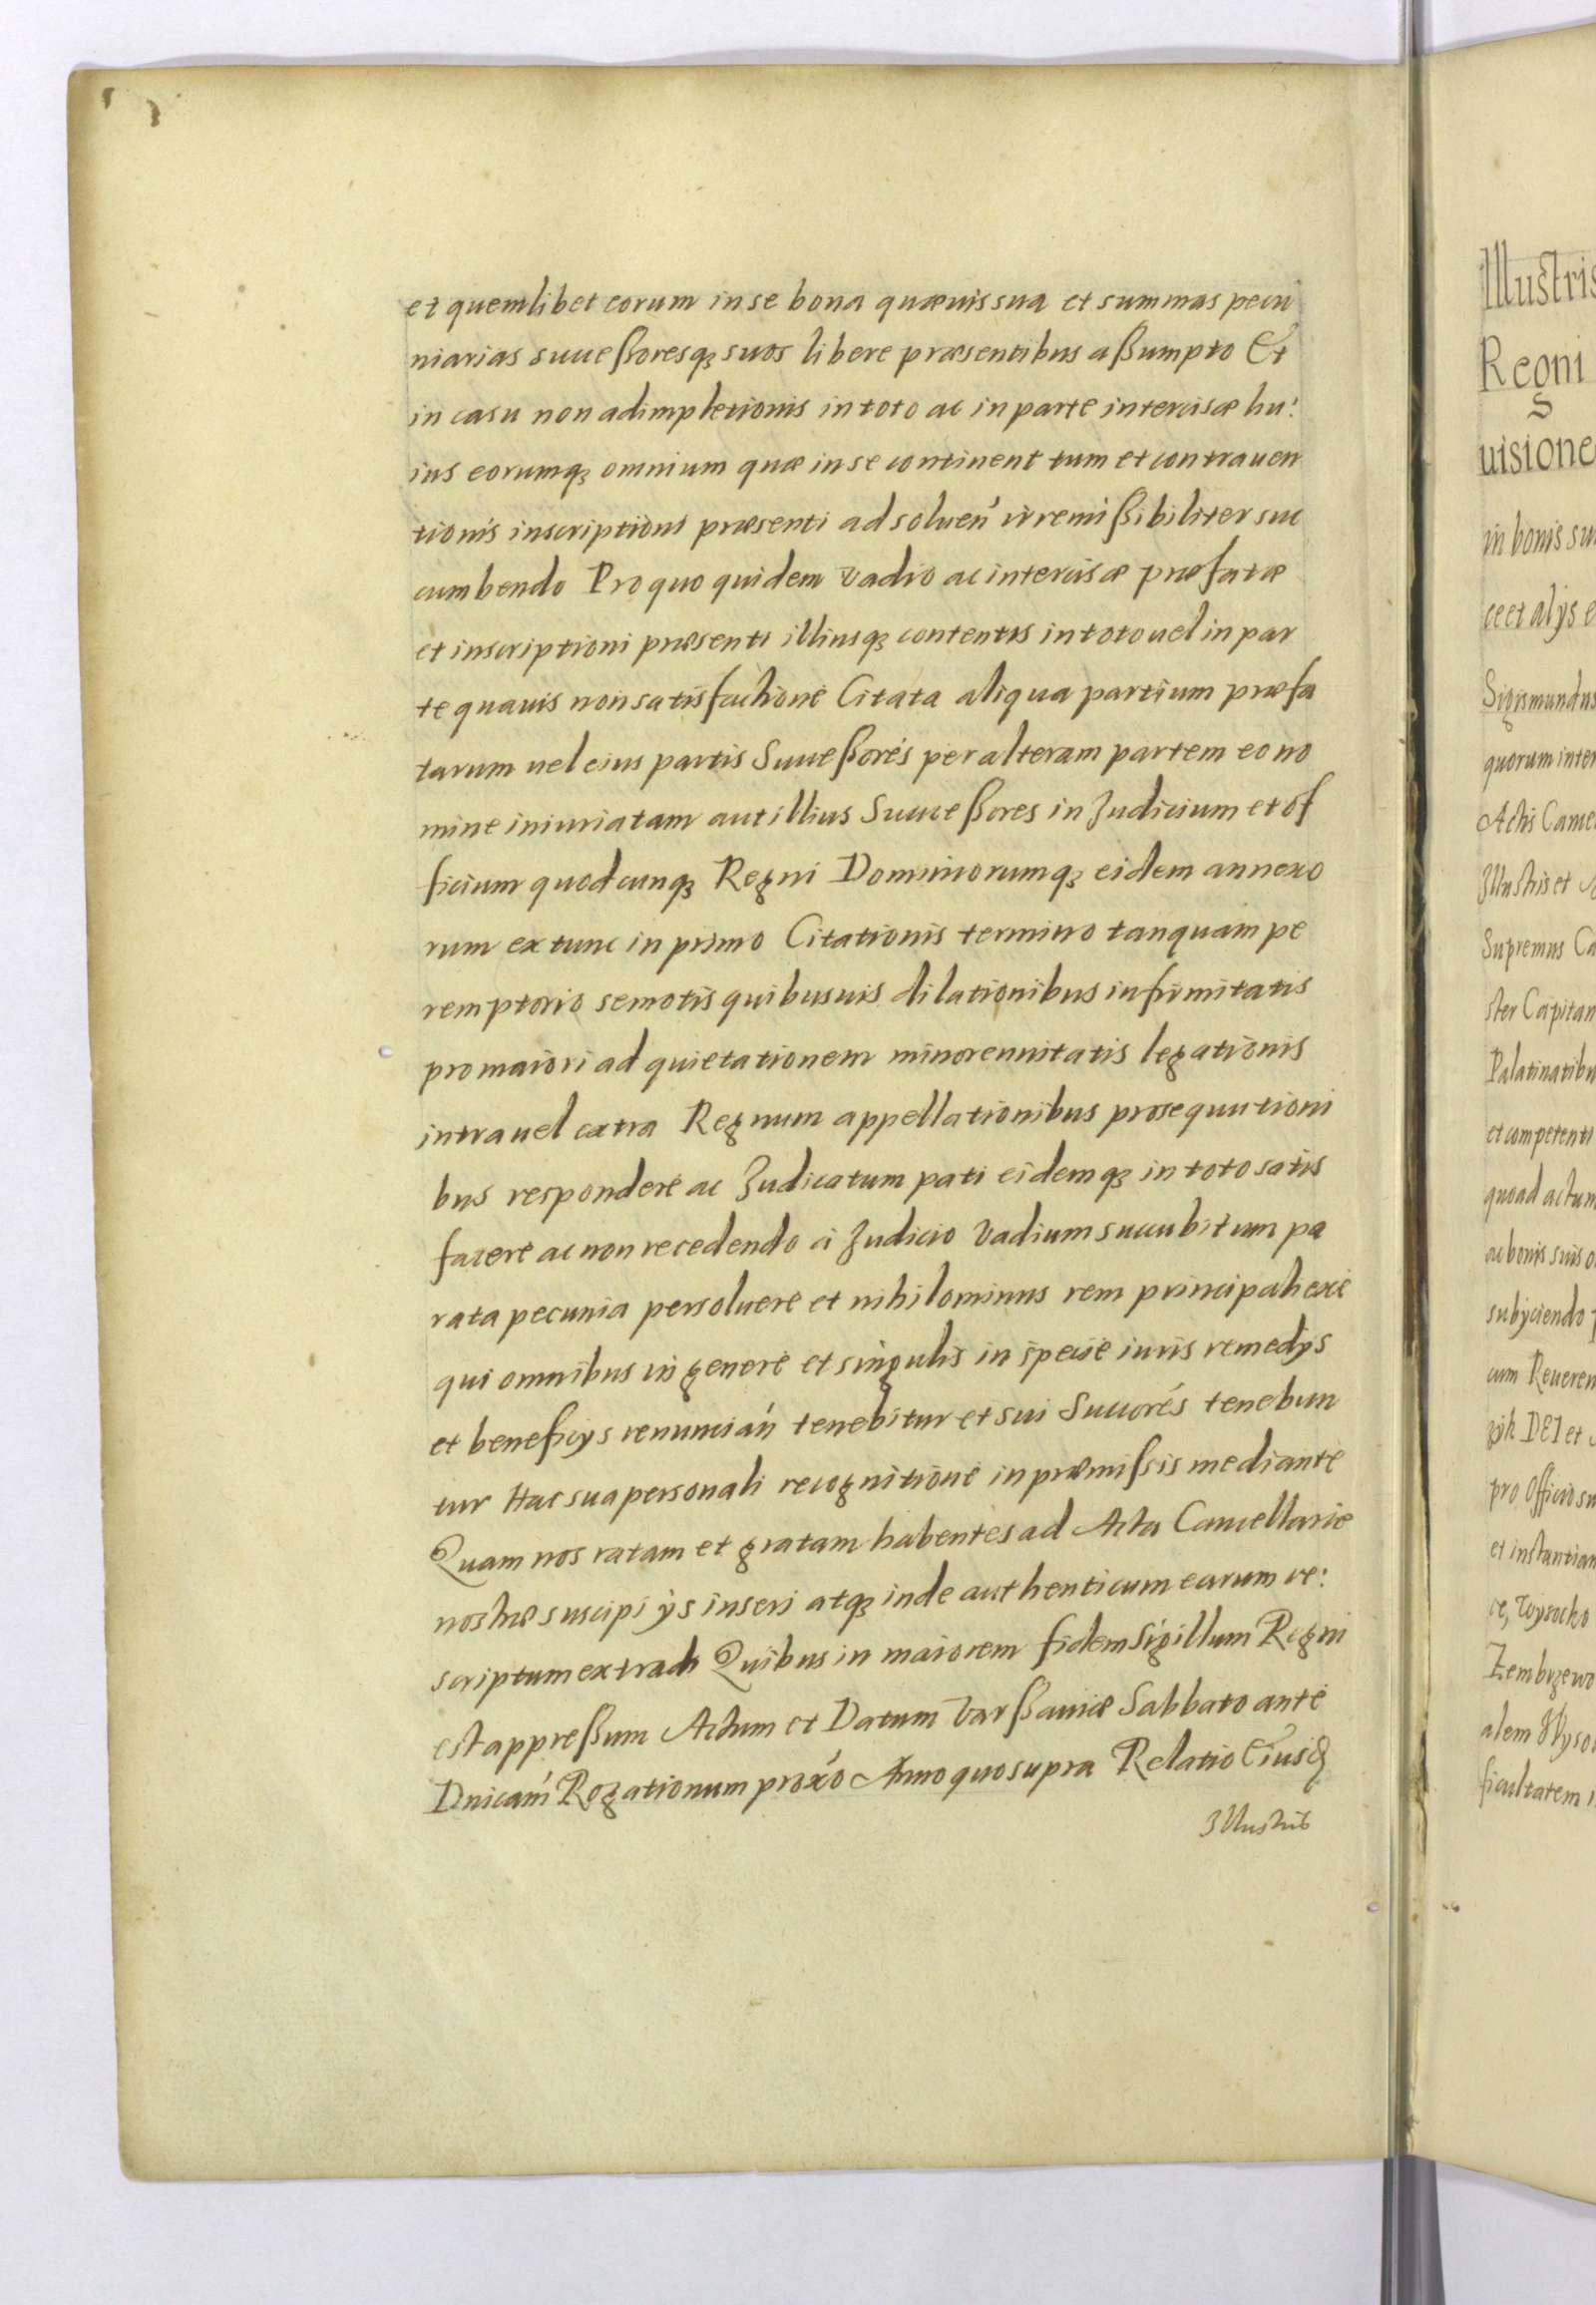 et quemlibet eorum in se bona quæuis sua et summas pecu
niarias succeßoresq3 suos libere præsentibus aßumpto Et
in casu non adimpletionis in toto ac in parte intercisæ hu:
ius eorumq3 omnium quæ in se continent tum et contrauen
tionis inscriptioni præsenti ad soluen irremißibiliter suc
cumbendo Pro quo quidem vadio ac intercisæ præfatæ
et inscriptioni præsenti illiusq3 contentis in toto uel in par
te quauis non satisfactione Citata aliqua partium præfa
tarum uel eius partis Succeßores per alteram partem eo no
mine iniuriatam aut illius Succeßores in Judicium et of
ficium quodcunq3 Regni Dominiorumq3 eidem annexo
rum ex tunc in primo Citationis termino tanquam pe
remptorio semotis quibusuis dilationibus infirmitatis
pro maiori ad quietationem minorennitatis legationis
intra uel extra Regnum appellationibus prosequutioni
bus respondere ac Judicatum pati eidemq3 in toto satis
facere ac non recedendo a Judicio vadium succubitum pa
rata pecunia persoluere et nihilominus rem principalem exe
qui omnibus in genere et singulis in specie iuris remedys
et beneficys renuncian tenebitur et sui Succores tenebun
tur Hac sua personali recognitione in præmissis mediante
Quam nos ratam et gratam habentes ad Acta Cancellarie
nostræ suscipi ys inseri atq3 inde authenticum earum re:
scriptum extradi Quibus in maiorem fidem Sigillum Regni
est appreßum Actum et Datum Varßauiæ Sabbato ante
Dnicam Rogationum proxo Anno quo supra Relatio Eiusd
Illustris
Illustris
Regni
uisione
in bonis su
ce et alys e
Sigismundus
quorum inter
Actis Cance
Illustris et
Supremus Ca
ster Capitan
Palatinatibu
et competenti
quoad actum
ac bonis suis o
subyciendo
cum Reueren
DEI et
pro Officio su
et instantiam
ce, Wysocko
Zembrzewo
alem Wyso
ficultatem